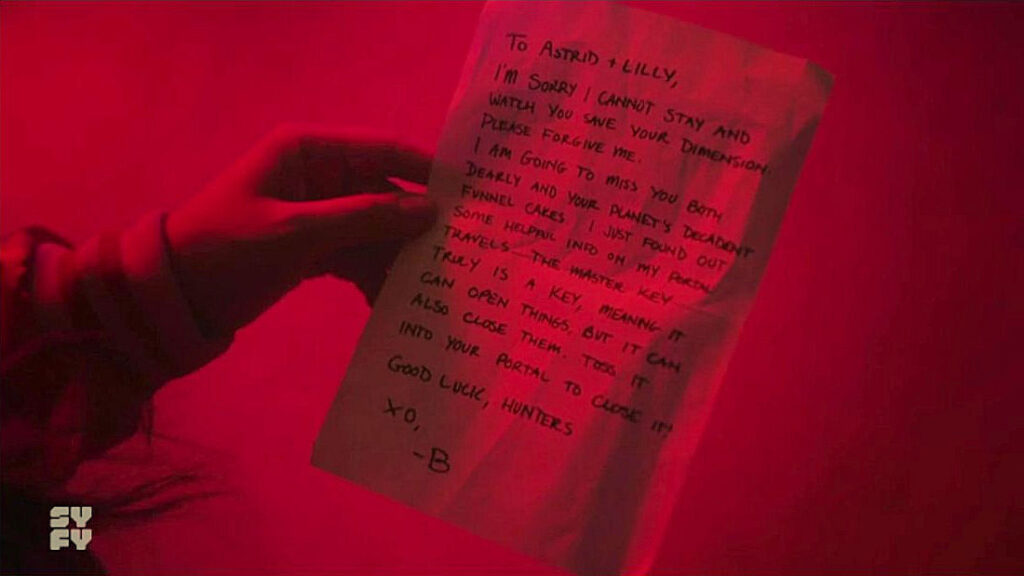 TO ASTRID + LILLY,
I'M SORRY I CANNOT STAY AND
WATCH YOU SAVE YOUR DIMENSION.
PLEASE FORGIVE ME.
I AM GOING TO MISS YOU BOTH
DEARLY AND YOUR PLANET'S DECADENT
FUNNEL CAKES. I JUST FOUND OUT
SOME HELPFUL INFO ON MY PORTAL
TRAVELS - THE MASTER KEY
TRULY IS A KEY, MEANING IT
CAN OPEN THINGS, BUT IT CAN
ALSO CLOSE THEM. TOSS IT
INTO YOUR PORTAL TO CLOSE IT!
GOOD LUCK, HUNTERS
XO,
-B
SY
FY